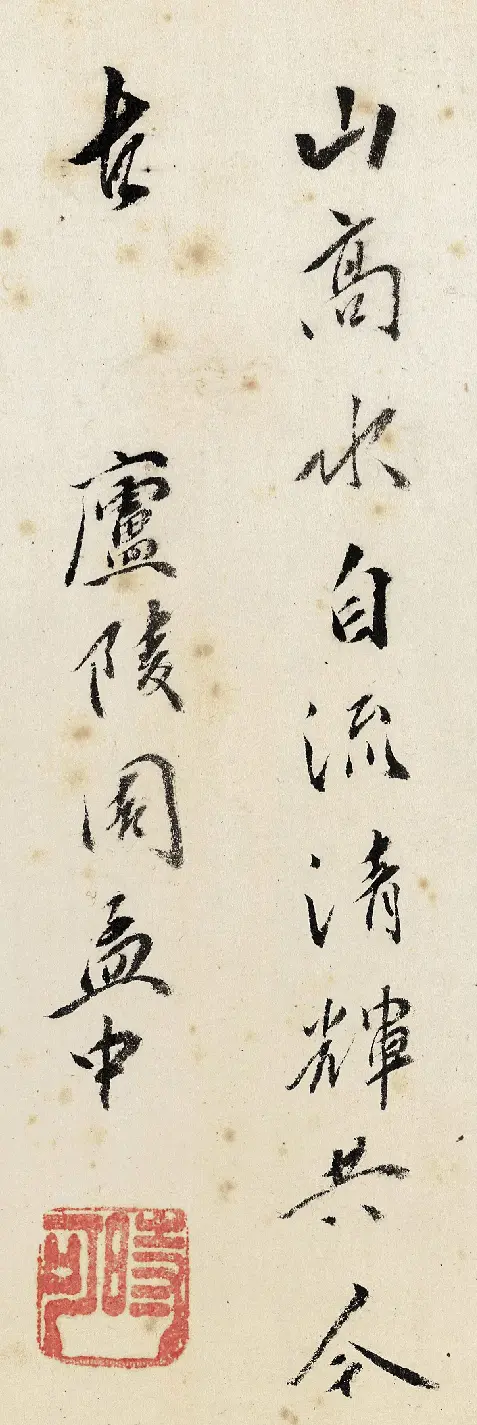 山高水自流清輝共今
古　廬陵周孟中
時可